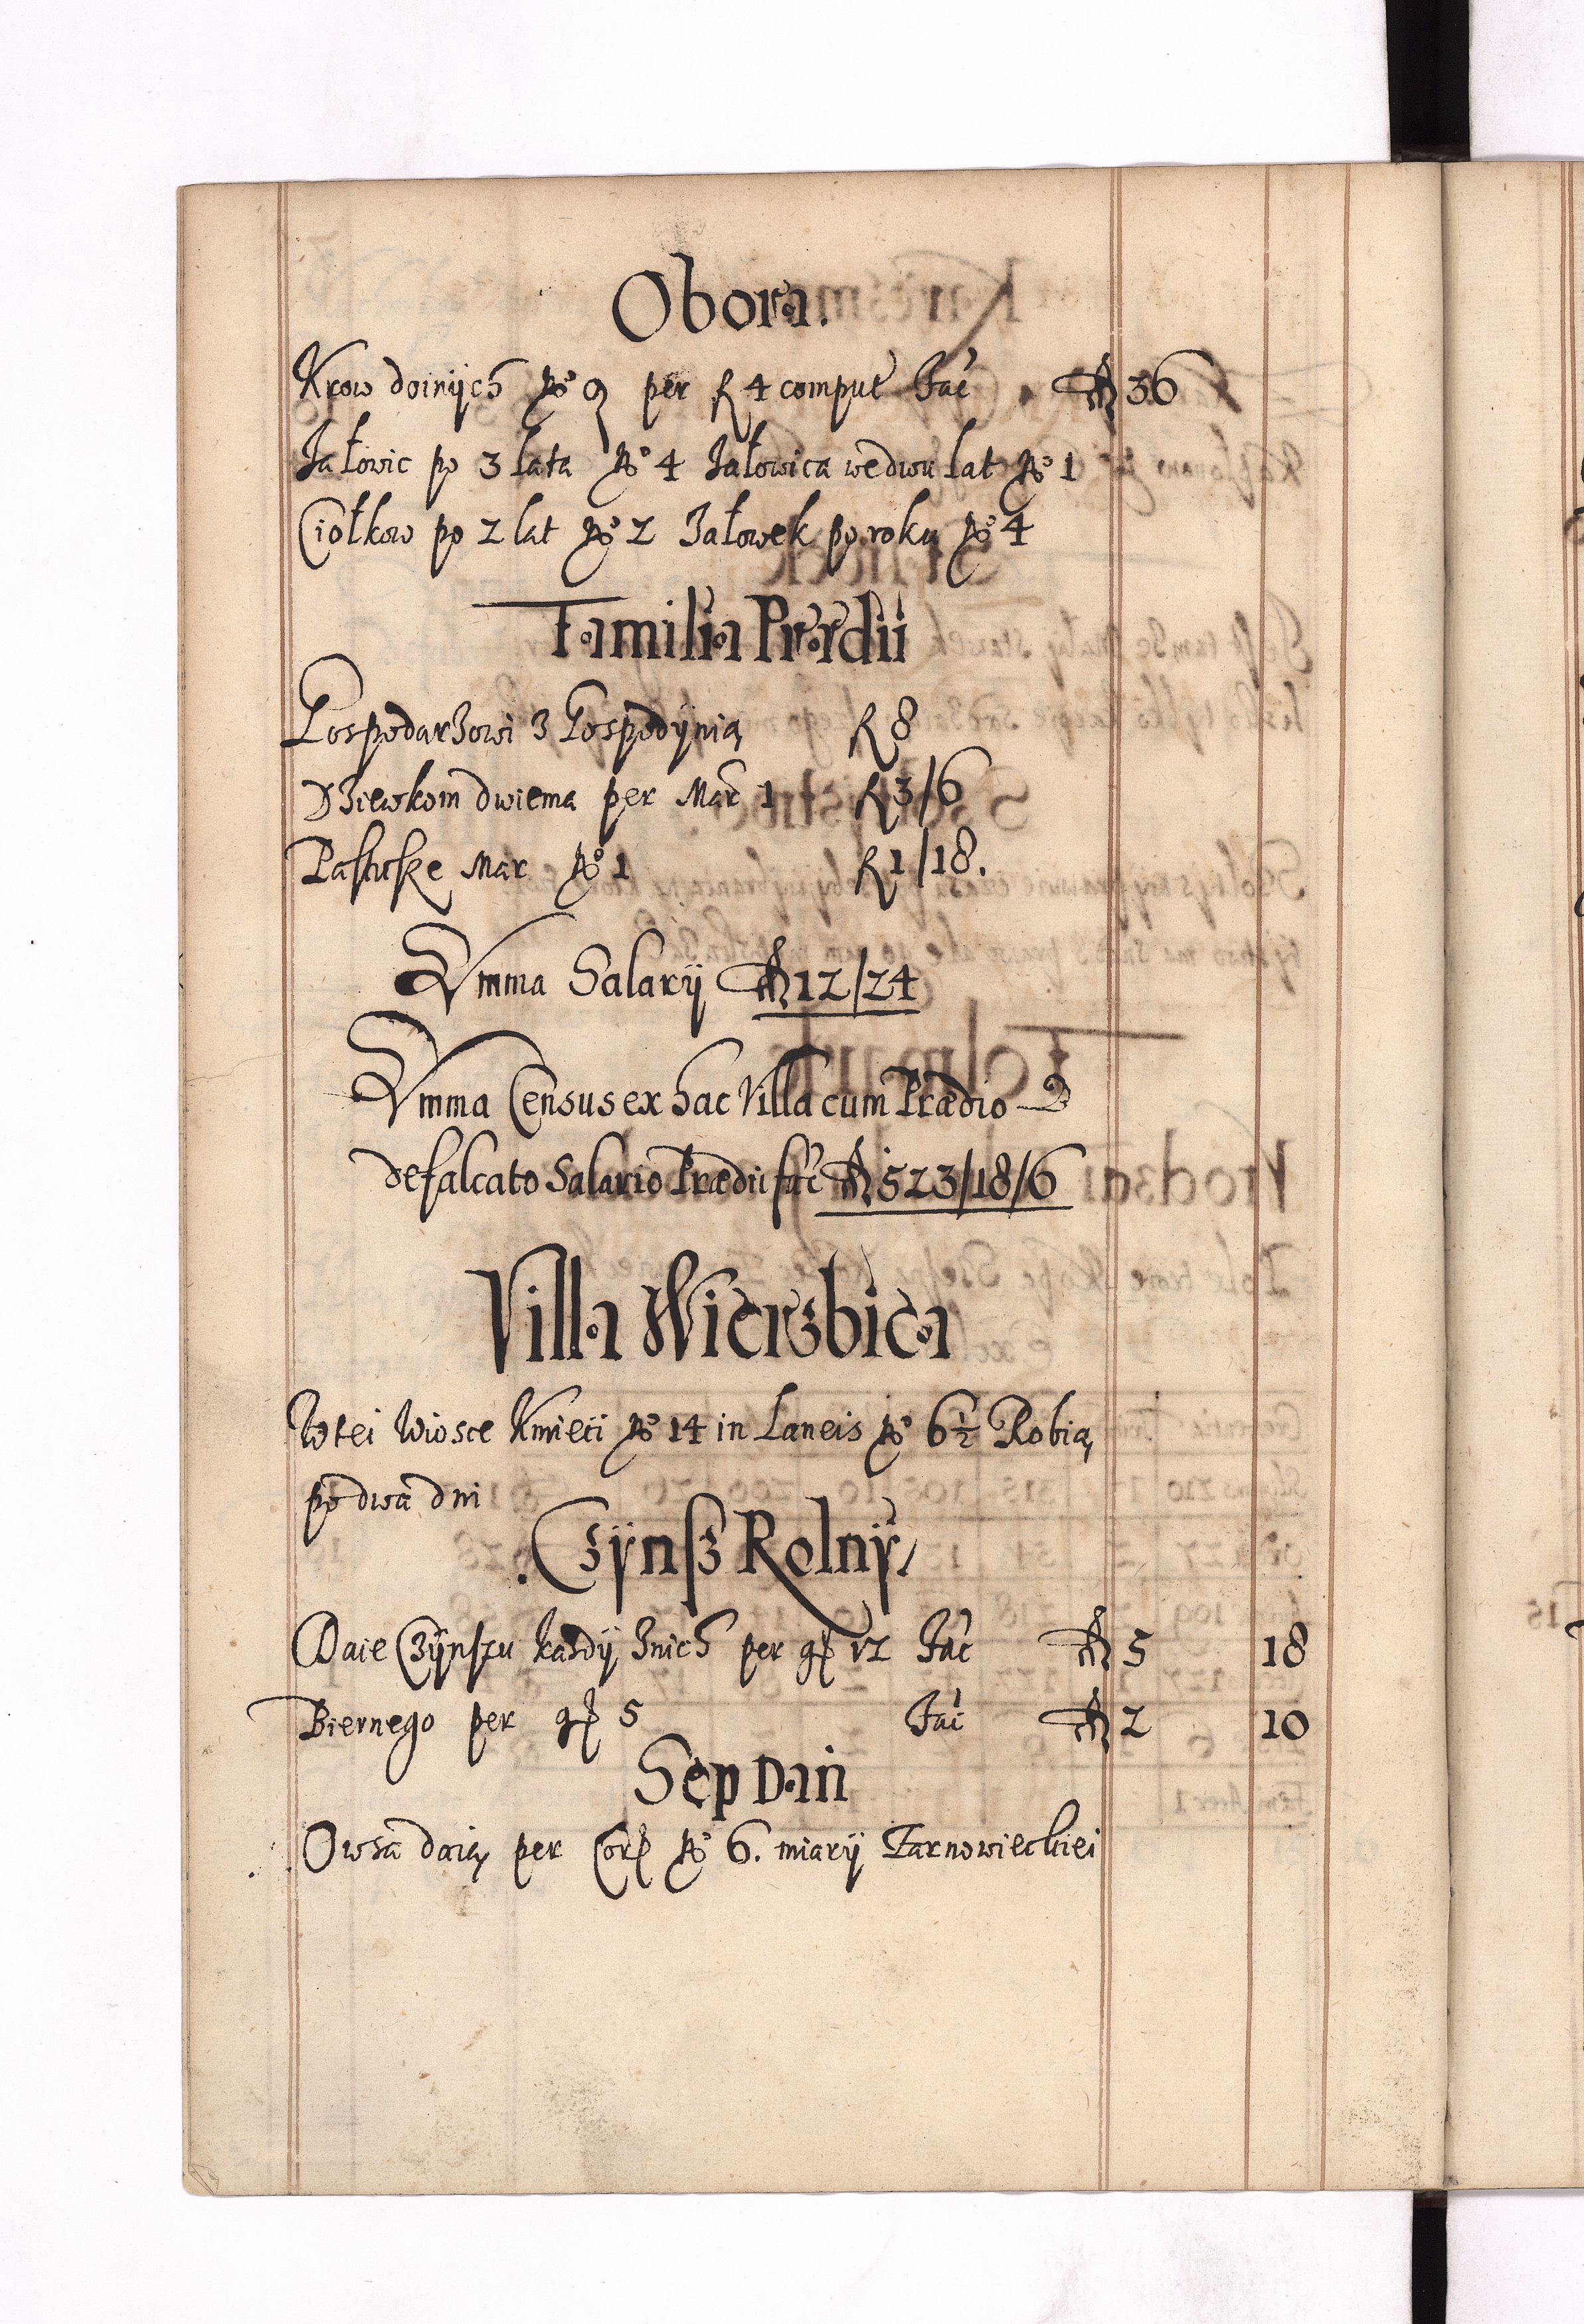 Obora.
Krow doinÿch No 9 per fl 4 comput fac fl 36
Jałowic po 3 lata No 4 Jałowica wedwu lat No 1
Ciołkow po 2 lat No 2 Jałowek po roku No 4
Familia Prædii
Gospodarzowi z Gospodÿnią fl 8
Dziewkom dwiema per Mar 1 fl 3/6
Pastusze Mar No 1 fl 1/18.
Summa Salarij fl 12/24
Summa Census ex hac Villa cum Prædio
defalcato Salario Prædii fac fl 523/18/6
Villa Wierzbica
Wtei Wiosce Kmieci No 14 in Laneis No 6½ Robią
po dwa dni
Czÿnsz Rolnÿ
Daie Czÿnszu każdÿ znich per gr 12 fac fl 5 18
Biernego per gr 5 fac fl 2 10
Sep Dań
Owsa daią per Cor No 6. miarÿ Tarnowieckiei